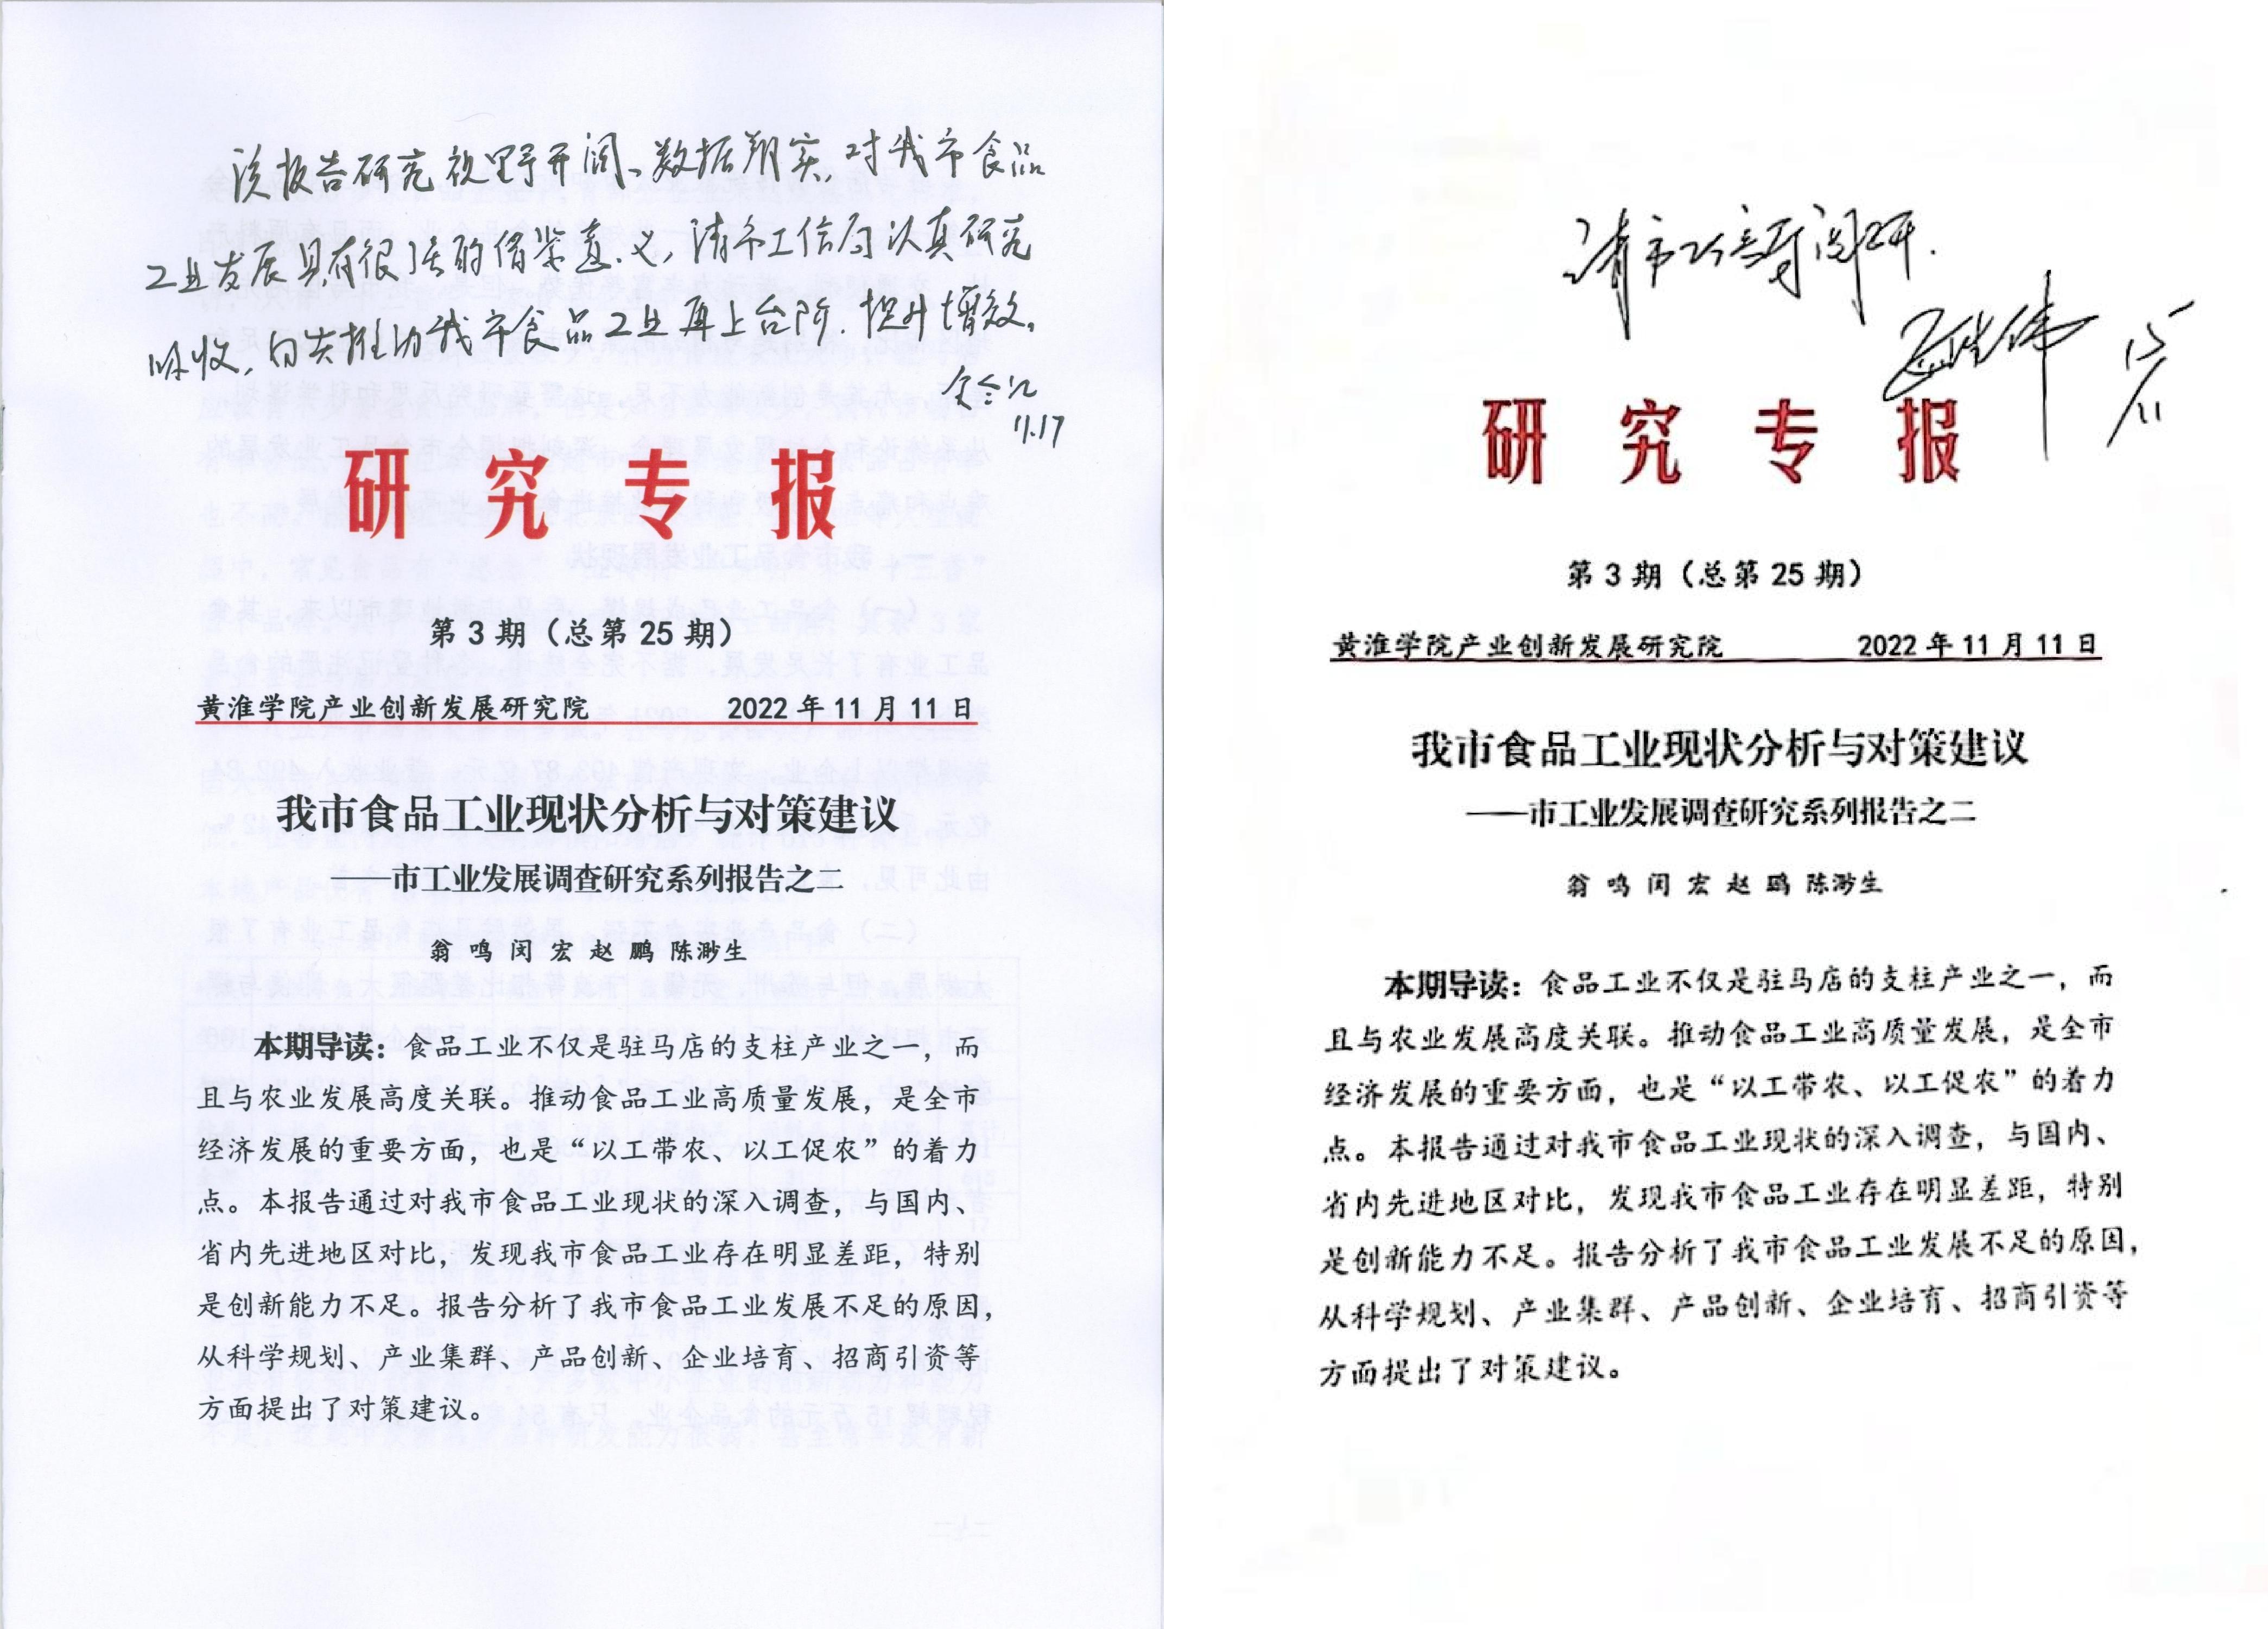 该报告研究视野开阔、数据翔实,对我市食品
工业发展具有很强的借鉴意义,请市工信局认真研究
吸收,向共推动我市食品工业再上台阶.提升增效。
11.17
研究专报
第3期(总第25期)
黄淮学院产业创新发展研究院 2022年11月11日
我市食品工业现状分析与对策建议
——市工业发展调查研究系列报告之二
翁鸣 闵宏 赵鹏 陈渺生
本期导读:食品工业不仅是驻马店的支柱产业之一,而
且与农业发展高度关联。推动食品工业高质量发展,是全市
经济发展的重要方面,也是“以工带农、以工促农”的着力
点。本报告通过对我市食品工业现状的深入调查,与国内、
省内先进地区对比,发现我市食品工业存在明显差距,特别
是创新能力不足。报告分析了我市食品工业发展不足的原因,
从科学规划、产业集群、产品创新、企业培育、招商引资等
方面提出了对策建议。
请市工信局阅研.
15/11
研究专报
第3期(总第25期)
黄淮学院产业创新发展研究院 2022年11月11日
我市食品工业现状分析与对策建议
——市工业发展调查研究系列报告之二
翁鸣 闵宏 赵鹏 陈渺生
本期导读:食品工业不仅是驻马店的支柱产业之一,而
且与农业发展高度关联。推动食品工业高质量发展,是全市
经济发展的重要方面,也是“以工带农、以工促农”的着力
点。本报告通过对我市食品工业现状的深入调查,与国内、
省内先进地区对比,发现我市食品工业存在明显差距,特别
是创新能力不足。报告分析了我市食品工业发展不足的原因,
从科学规划、产业集群、产品创新、企业培育、招商引资等
方面提出了对策建议。